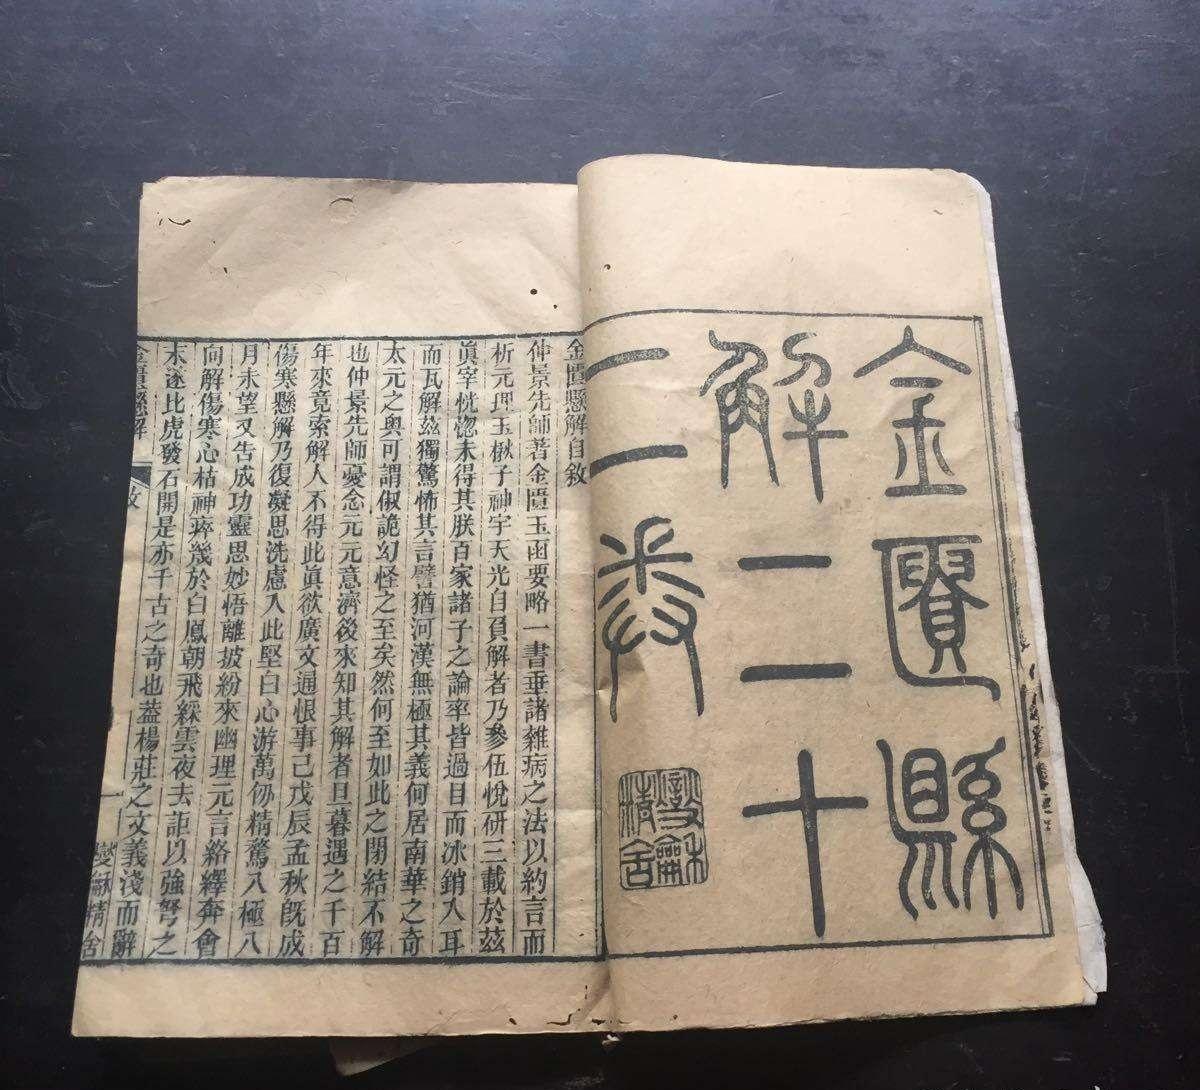 金匱縣
解二十
二卷
燮龢
精舍
金匱懸解自敘
仲景先師著金匱玉函要略一書垂諸雜病之法以約言而
析元理玉楸子神宇天光自負解者乃參伍悅研三載於茲
眞宰恍惚未得其朕百家諸子之論率皆過目而冰銷入耳
而瓦解茲獨驚怖其言譬猶河漢無極其義何居南華之奇
太元之奧可謂俶詭幻怪之至矣然何至如此之閉結不解
也仲景先師憂念元元意濟後來知其解者旦暮遇之千百
年來竟索解人不得此眞欲廣文通恨事已戊辰孟秋旣成
傷寒懸解乃復凝思洗慮入此堅白心游萬仞精騖八極八
月未望又告成功靈思妙悟離披紛來幽理元言絡繹奔會
向解傷寒心枯神瘁幾於白鳳朝飛綵雲夜去詎以強弩之
末遂比虎發石開是亦千古之奇也葢楊莊之文義淺而辭
金匱懸解 敘 一 燮龢精舍